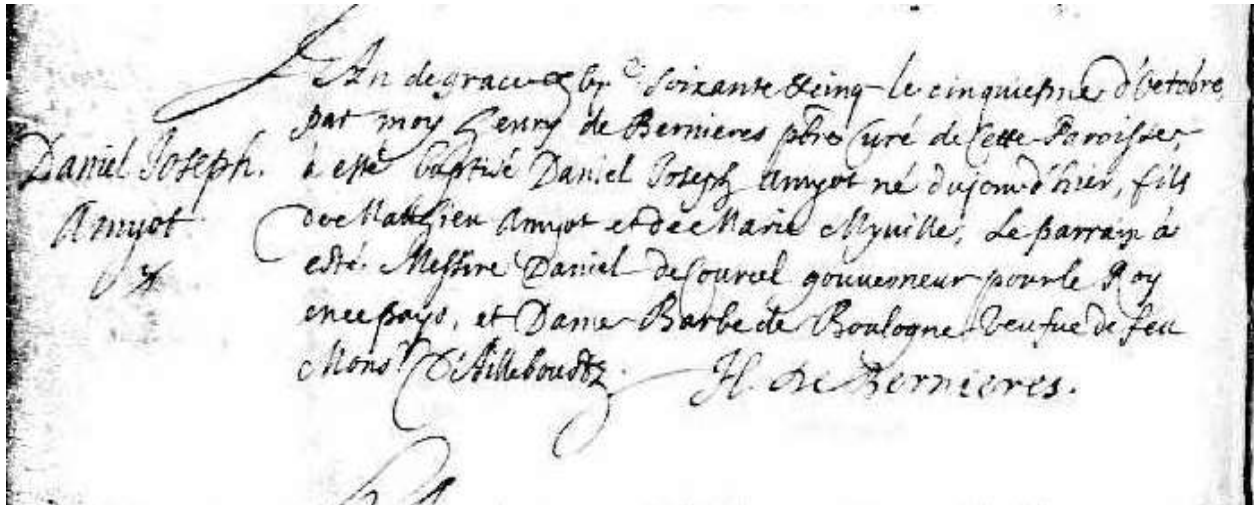 Daniel Joseph.
Amyot
L'An de grace soixante & cinq le cinquiesme d'Octobre,
par moy Henry de Bernieres pbre Curé de Cette Paroisse,
à esté baptisé Daniel Joseph Amyot né du jour d'hier, fils
de Mathieu Amyot et de Marie Myuille, Le parrain à
esté Messire Daniel de Courcel gouuerneur pour le Roy
en ce pays, et Dame Barbe de Boulogne Veufue de feu
Monsr D'Ailleboudtz.
H. de Bernieres.